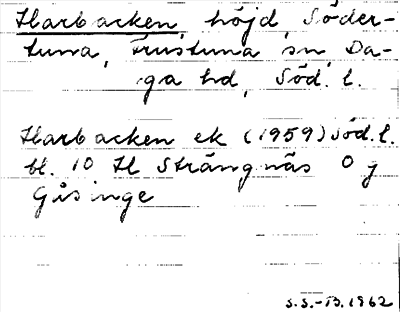 Harbacken, höjd, Söder-
tuna, Frustuna sn, Da-
ga hd, Söd. l.
Harbacken ek (1959) Söd. l.
bl. 10 H Strängnäs O g
Gåsinge
S.S.-B. 1962